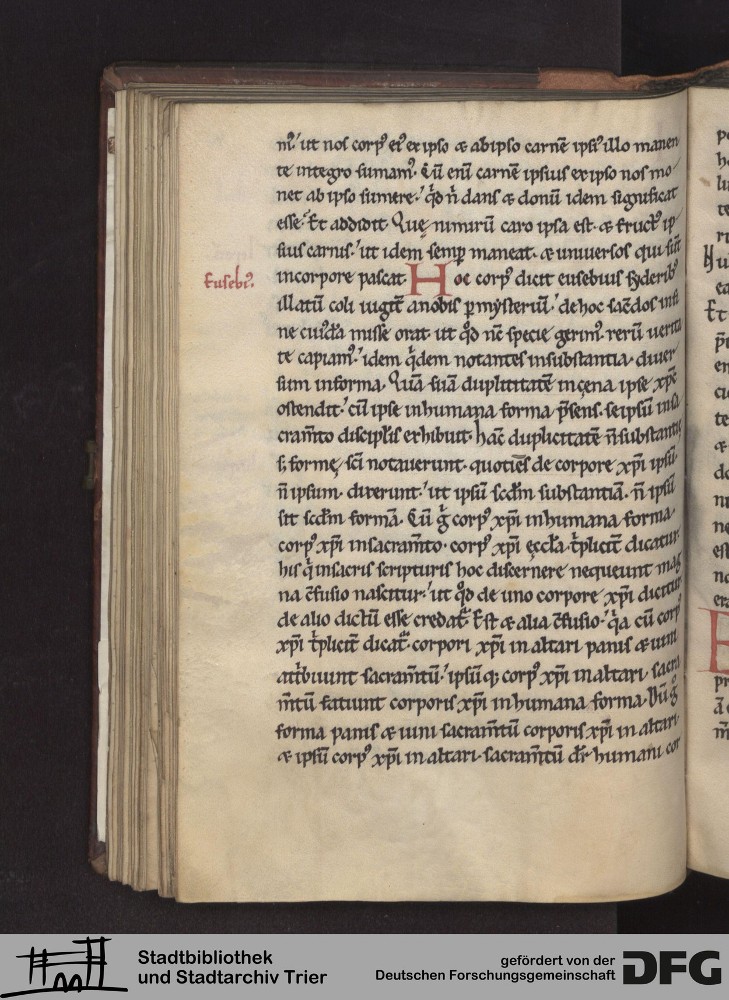 mꝰ ut nos corpꝰ eiꝰ ex ipso ⁊ ab ipso carnē ipsiꝰ illo manen
te integro sumamꝰ. Cū enī carnē ipsius ex ipso nos mo
net ab ipso sumere. qd n̄ dans ⁊ donū idem significat
esse. Et addidit. Quę nimirū caro ipsa est ⁊ fructꝰ ip
sius carnis. ut idem semp maneat. ⁊ universos qui sūt
in corpore pascat. Hoc corpꝰ dicit eusebius syderibꝰ
Eusebiꝰ.
illatū coli iugit̄ a nobis p mysteriū. de hoc sac̄dos in fi
ne misse orat. ut qd nc̄ specie gerimꝰ. rerū verita
te capiamꝰ. idem qdem notantes in substantia. diver
sum in forma. Quā suā duplicitatē in cena ipse xp̄c
ostendit. cū ipse in humana forma p̄sens. seipsū in sa
cram̄to discipl̄is exhibuit. hāc duplicitatē n̄ substantię
s; formę sc̄i notaverunt. quotiēs de corpore xp̄i ipsū.
n̄ ipsum. dixerunt. ut ipsū scd̄m substantiā. n̄ ipsū
sit scd̄m formā. Cū g̊ corpꝰ xp̄i in humana forma.
corpꝰ xp̄i in sacram̄to. corpꝰ xp̄i ęccl̄a. t̄plicit̄ dicatur.
his q̄ in sacris scripturis hoc discernere nequeunt mag
na c̄fusio nascitur. ut qd de uno corpore xp̄i dicitur
de alio dictū esse credat̄. Est ⁊ alia c̄fusio. q̄a cū corpꝰ
xp̄i t̄plicit̄ dicat̄. corpori xp̄i in altari panis ⁊ vini
att̄buunt sacram̄tū. ipsūq; corpꝰ xp̄i in altari. sacra
m̄tū fatiunt corporis xp̄i in humana forma. Dū g̊
forma panis ⁊ vini sacram̄tū corporis xp̄i in altari.
⁊ ipsū corpꝰ xp̄i in altari. sacram̄tū dr̄ humani cor
Stadtbibliothek
und Stadtarchiv Trier
gefördert von der
Deutschen Forschungsgemeinschaft
DFG